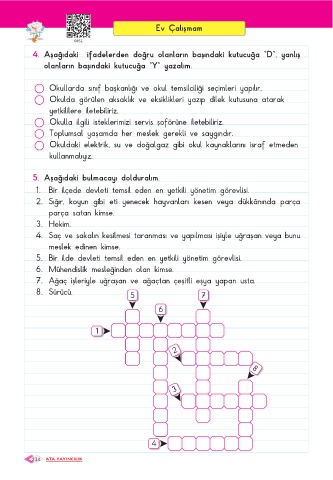 Ev Çalışmam
4. Aşağıdaki ifadelerden doğru olanların başındaki kutucuğa "D", yanlış
olanların başındaki kutucuğa "Y" yazalım.
Okullarda sınıf başkanlığı ve okul temsilciliği seçimleri yapılır.
Okulda görülen aksaklık ve eksiklikleri yazıp dilek kutusuna atarak
yetkililere iletebiliriz.
Okulla ilgili isteklerimizi servis şoförüne iletebiliriz.
Toplumsal yaşamda her meslek gerekli ve saygındır.
Okuldaki elektrik, su ve doğalgaz gibi okul kaynaklarını israf etmeden
kullanmalıyız.
5. Aşağıdaki bulmacayı dolduralım.
1. Bir ilçede devleti temsil eden en yetkili yönetim görevlisi.
2. Sığır, koyun gibi eti yenecek hayvanları kesen veya dükkânında parça
parça satan kimse.
3. Hekim.
4. Saç ve sakalın kesilmesi taranması ve yapılması işiyle uğraşan veya bunu
meslek edinen kimse.
5. Bir ilde devleti temsil eden en yetkili yönetim görevlisi.
6. Mühendislik mesleğinden olan kimse.
7. Ağaç işleriyle uğraşan ve ağaçtan çeşitli eşya yapan usta.
8. Sürücü.
5
7
6
1
2
8
3
4
34 ATA YAYINCILIK